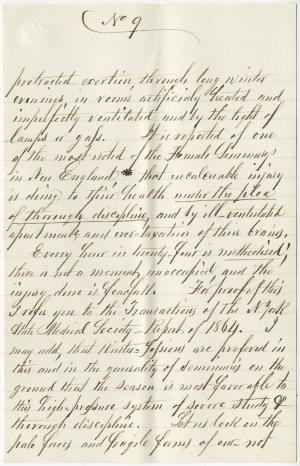 No 9
protracted exertion through long winter
evenings, in rooms artificially heated and
imperfectly ventilated and by the light of
lamps or gas. It is reported of one
of the most noted of the Female Seminary
in New England * that incalculable injury
is doing to their health under the plea
of thorough discipline, and by ill ventilated
apartments and over-taxation of their brains.
Every hour in twenty-four is methodised,
there is not a moment unoccupied, and the
injury done is fearfull. For proof of this
I refer you to the Transactions of the N York
State Medical Society - Repat. of 1864. I
may add, that Winter-Sessions are prefered in
this and in the generality of Seminaries on the
ground that the season is most favorable to
this high-presure system of severe study &
thorough discipline. Let us look on the
pale faces and fragile forms of our not